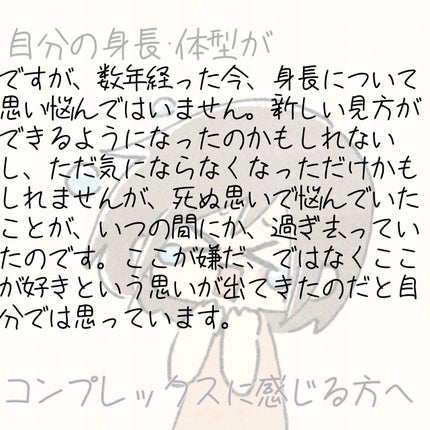 自分の身長・体型が
ですが、数年経った今、身長について
思い悩んではいません。新しい見方が
できるようになったのかもしれない
し、ただ気にならなくなっただけかも
しれませんが、死ぬ思いで悩んでいた
ことが、いつの間にか、過ぎ去ってい
たのです。ここが嫌だ、ではなくここ
が好きという思いが出てきたのだと自
分では思っています。
コンプレックスに感じる方へ